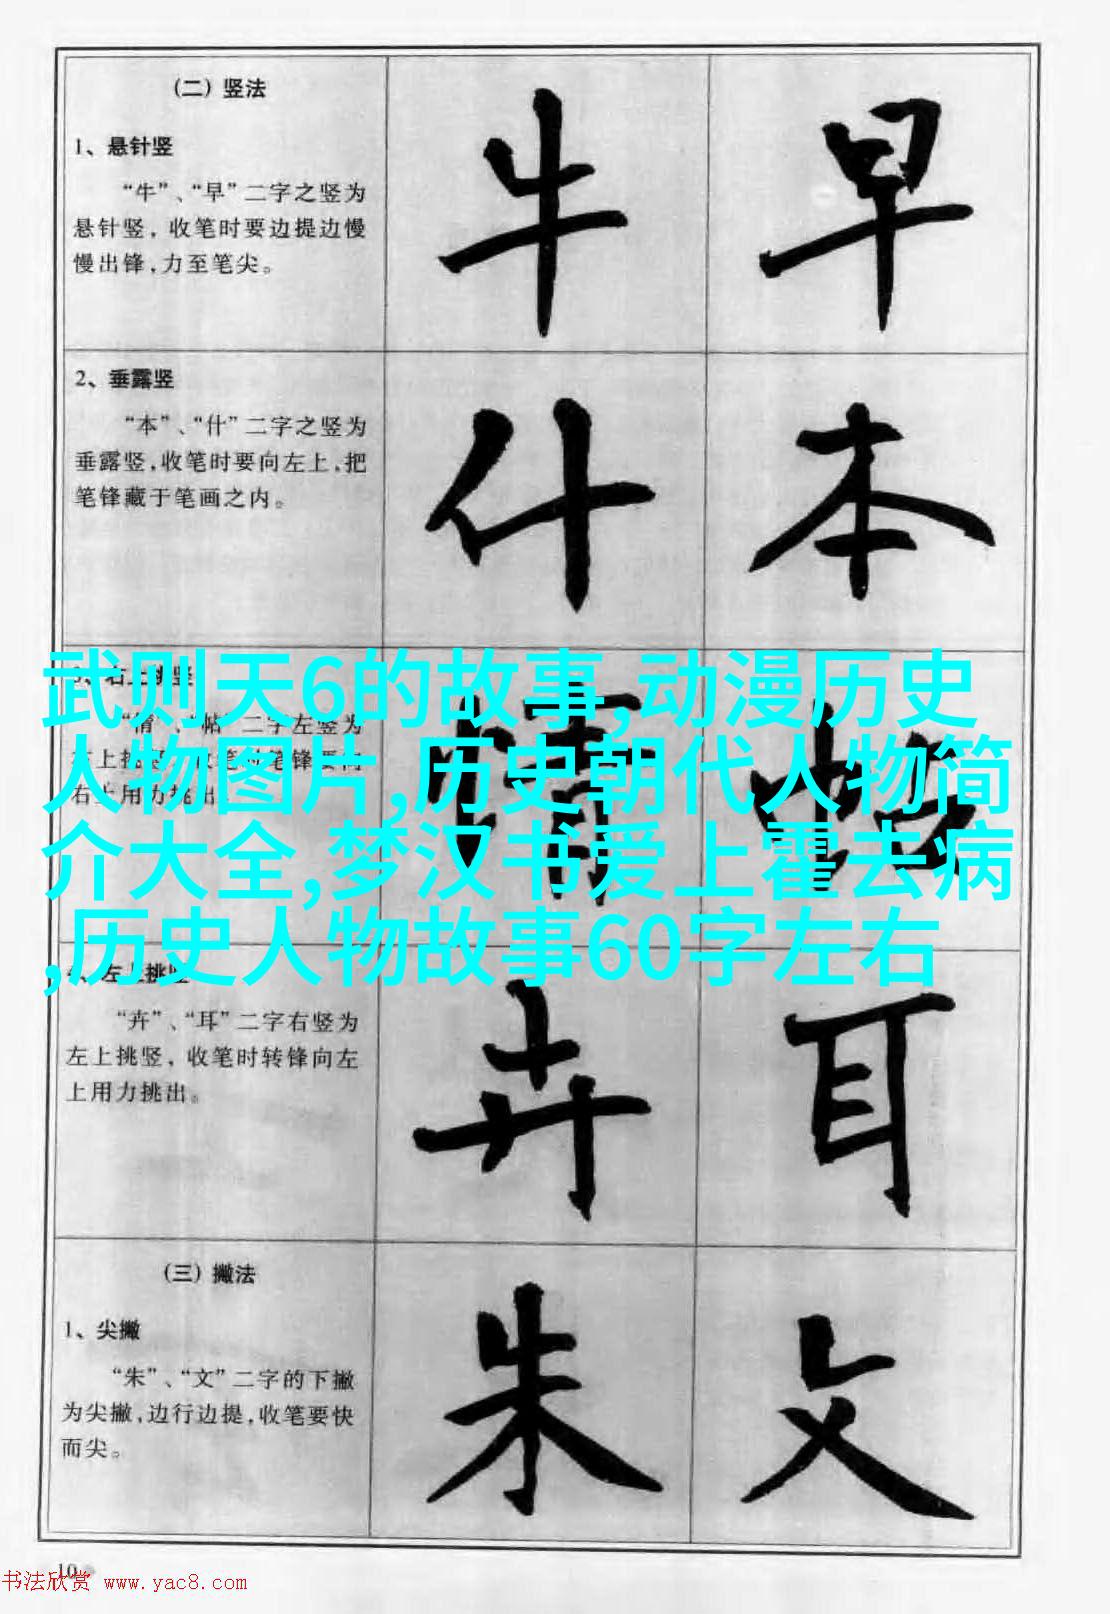 （二）竖法
牛
早
1、悬针竖
“牛”、“早”二字之竖为
悬针竖，收笔时要边提边慢
慢出锋，力至笔尖。
2、垂露竖
什
本
“本”、“什”二字之竖为
垂露竖，收笔时要向左上，把
笔锋藏于笔画之内。
武则天6的故事,动漫历史
人物图片,历史朝代人物简
介大全,梦汉书爱上霍去病
,历史人物故事60字左右
“卉”、“耳”二字右竖为
左上挑竖，收笔时转锋向左
上用力挑出。
卉
耳
（三）撇法
1、尖撇
朱
文
“朱”、“文”二字的下撇
为尖撇，边行边提，收笔要快
而尖。
10
书法欣赏 www.yac8.com